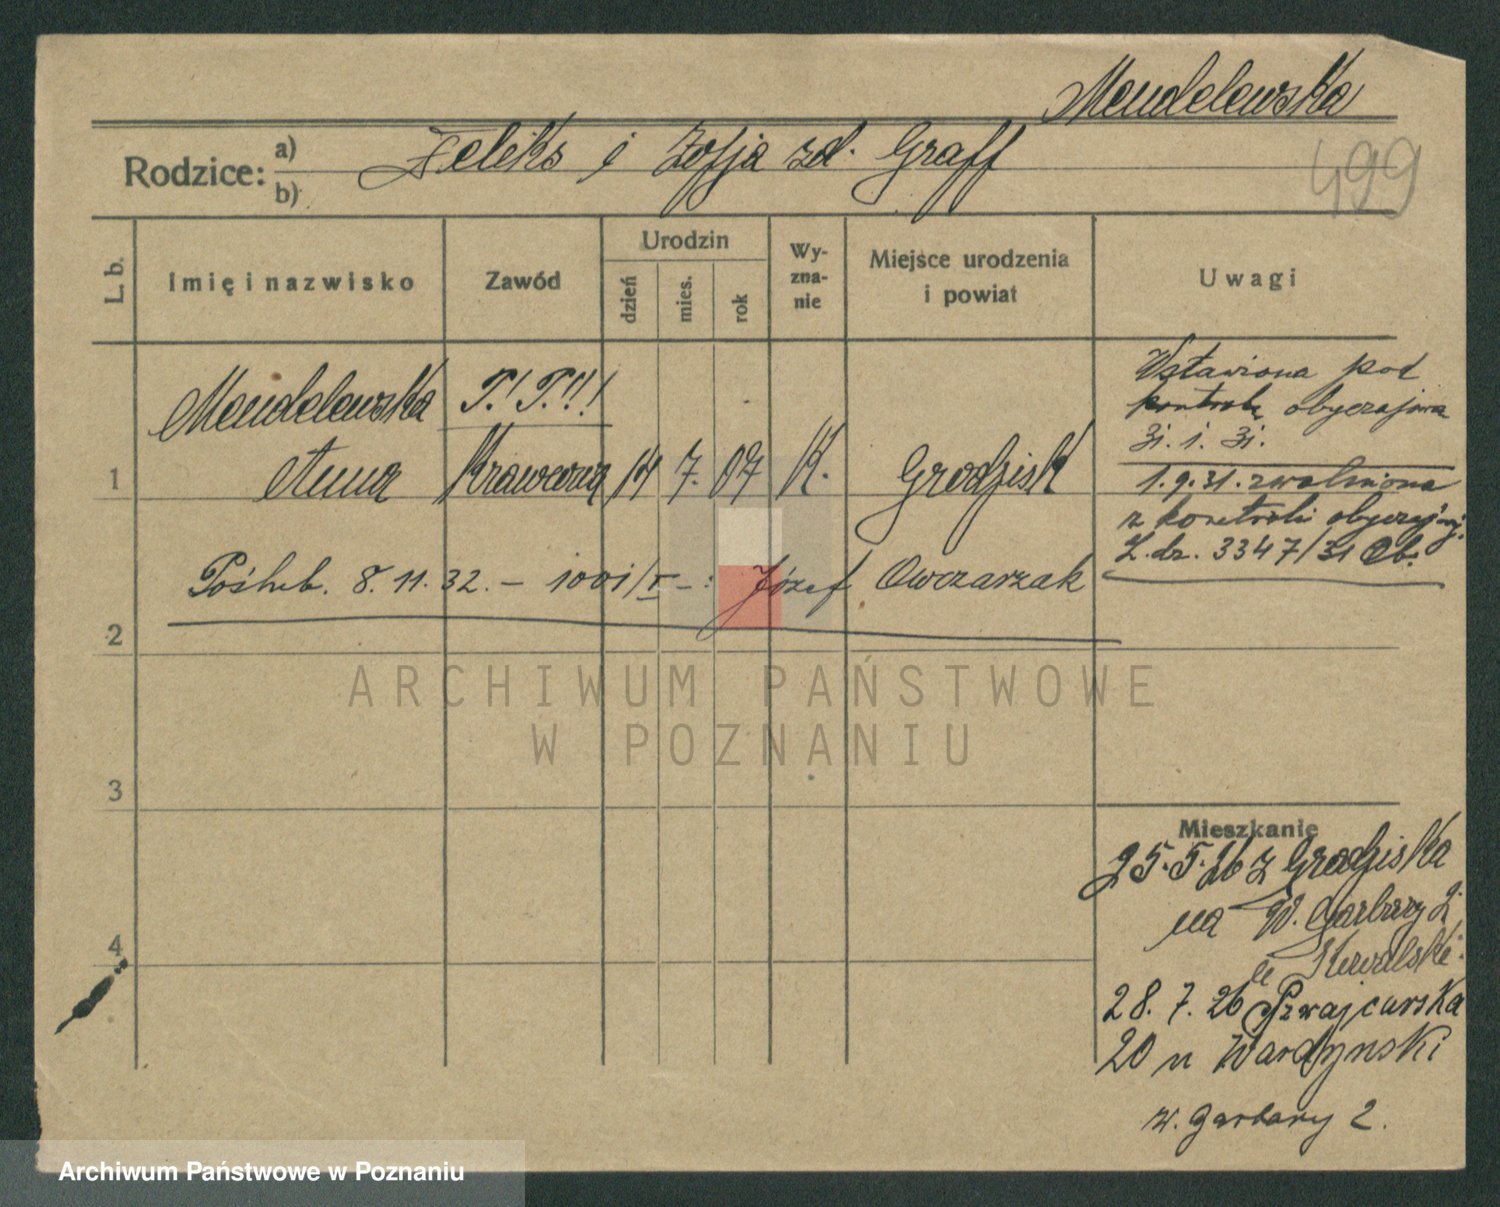 Mendelewska
Rodzice: a) Feliks i Zofja zd. Graff
b)
499
L. b.
Imię i nazwisko
Zawód
Urodzin
dzień
mies.
rok
Wy-
zna-
nie
Miejsce urodzenia
i powiat
Uwagi
Mendelewska P.! P.!!!
1 Anna Krawcowa 14 7. 07 K. Grodzisk
Wstawiona pod
kontrolę obyczajową
31. 1. 31.
1.9.31. zwolniona
z kontroli obyczajowej.
L.dz. 3347/31 Ob.
Poślub. 8.11.32. – 1001/V –: Józef Owczarzak
2
ARCHIWUM PAŃSTWOWE
W POZNANIU
3
4
Mieszkanie
25.5.26 z Grodziska
na W. Garbary 2
u Kowalski.
28.7.26 Szwajcarska
20 u Wardynski
w. Garbary 2.
Archiwum Państwowe w Poznaniu